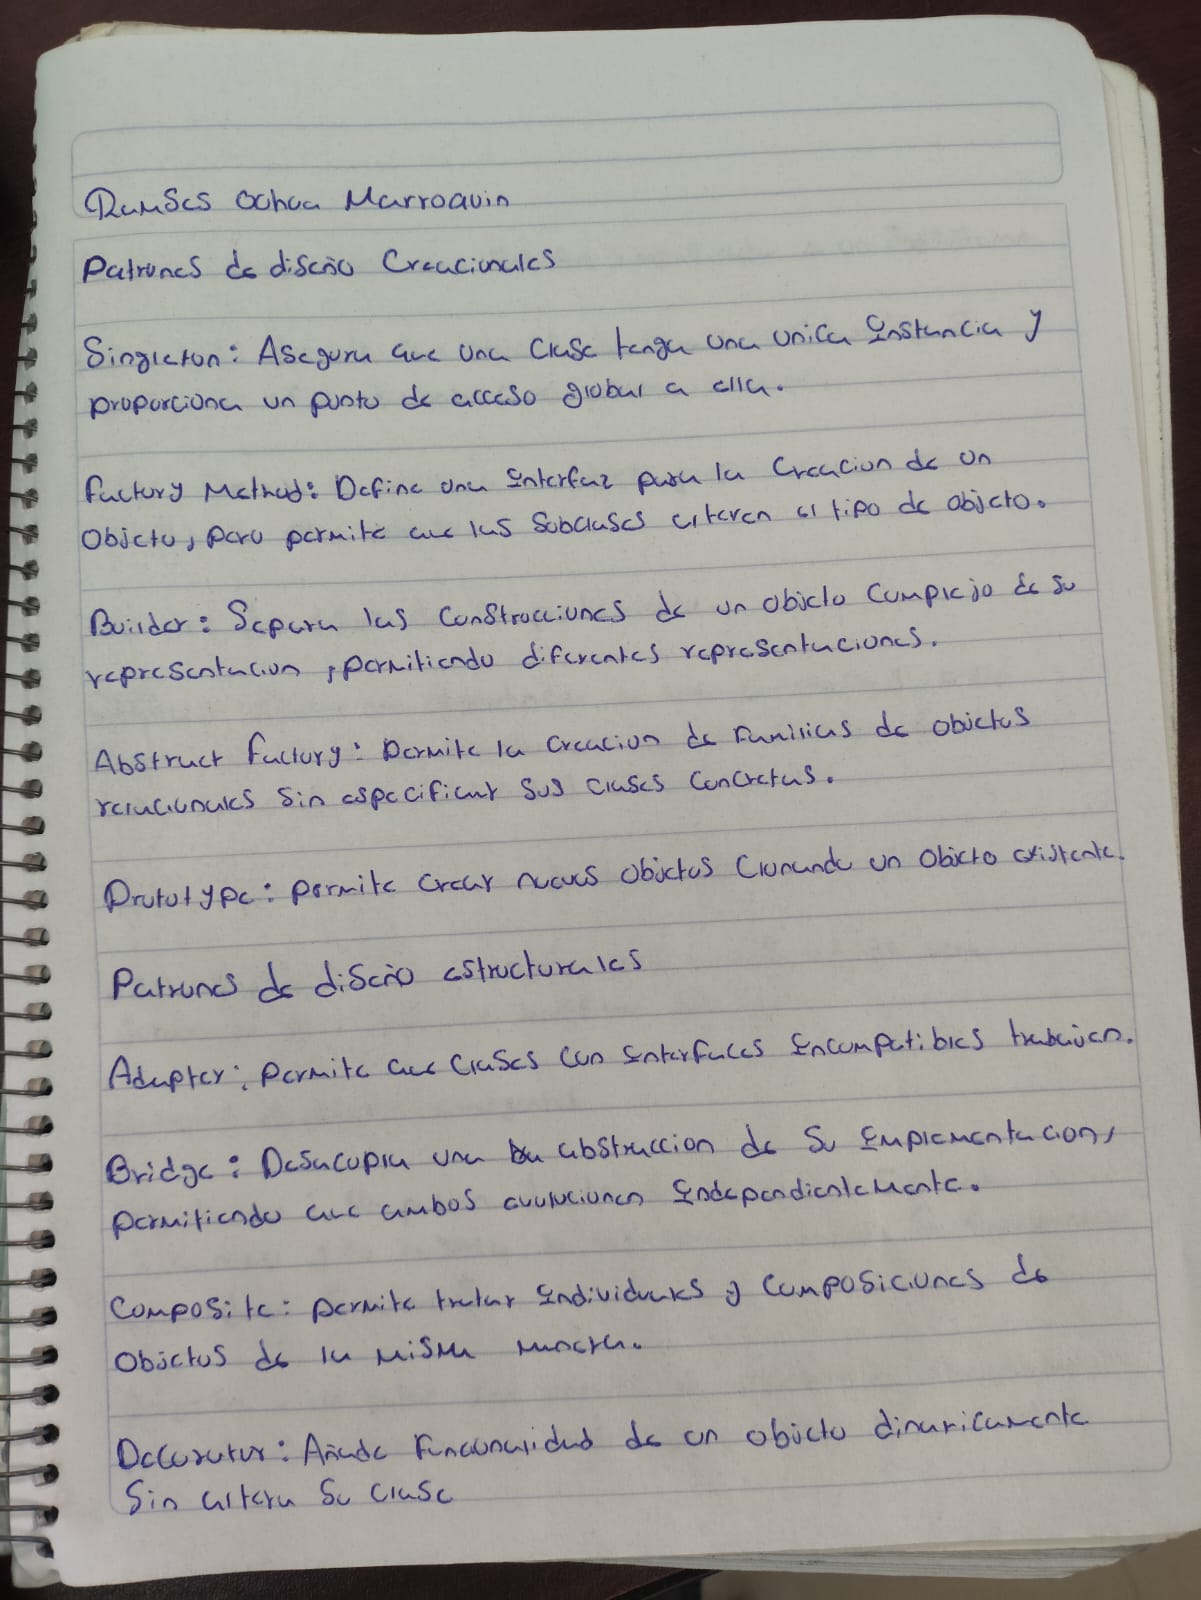 Ramses Ochoa Marroquin
Patrones de diseño Creacionales
Singleton: Asegura que una clase tenga una unica Instancia y
proporciona un punto de acceso global a ella.
Factory Method: Define una Interfaz para la Creacion de un
Objeto, pero permite que las subclases alteren el tipo de objeto.
Builder: Separa las construcciones de un objeto complejo de su
representacion, permitiendo diferentes representaciones.
Abstract Factory: permite la creacion de Familias de objetos
relacionales sin especificar sus clases concretas.
Prototype: permite crear nuevos objetos clonando un objeto existente.
Patrones de diseño estructurales
Adapter: permite que clases con Interfaces Incompatibles trabajen.
Bridge: Desacopla una abstraccion de su Implementacion,
permitiendo que ambos evolucionen Independientemente.
Composite: permite tratar Individuales y composiciones de
Objetos de la misma manera.
Decorator: Añade Funcionalidad de un objeto dinamicamente
Sin altera su clase